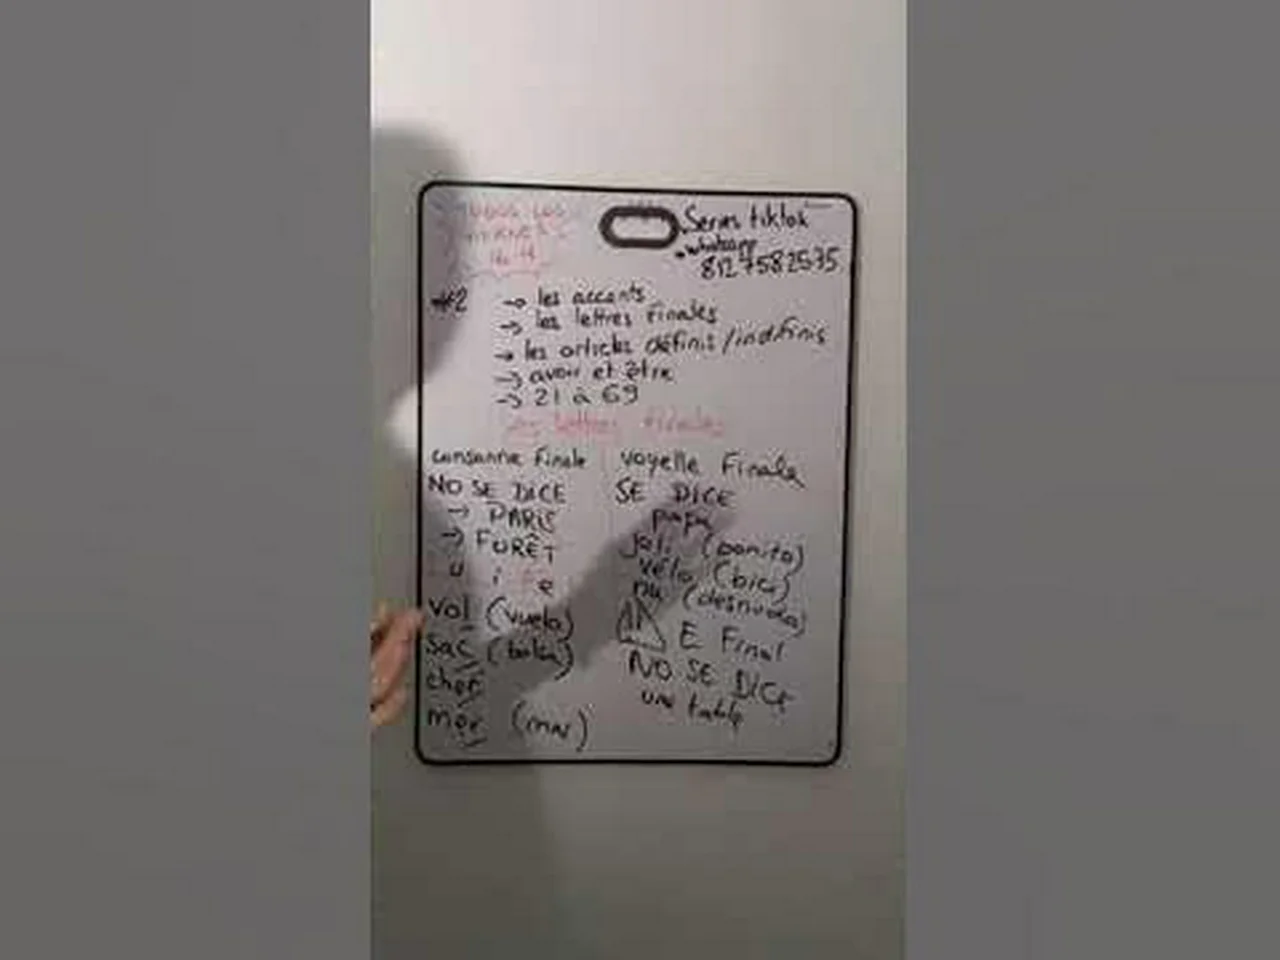 Series tiktok
whatsapp
8127582575
#2
→ les accents
→ les lettres finales
→ les articles définis/indéfinis
→ avoir et être
→ 21 à 69
les lettres finales
consonne finale
NO SE DICE
→ PARIS
→ FORÊT
u i e
vol (vuelo)
sac
cher
mer (mar)
voyelle Finale
SE DICE
papa
joli (bonito)
vélo (bici)
nu (desnudo)
E Final
NO SE DICE
une table